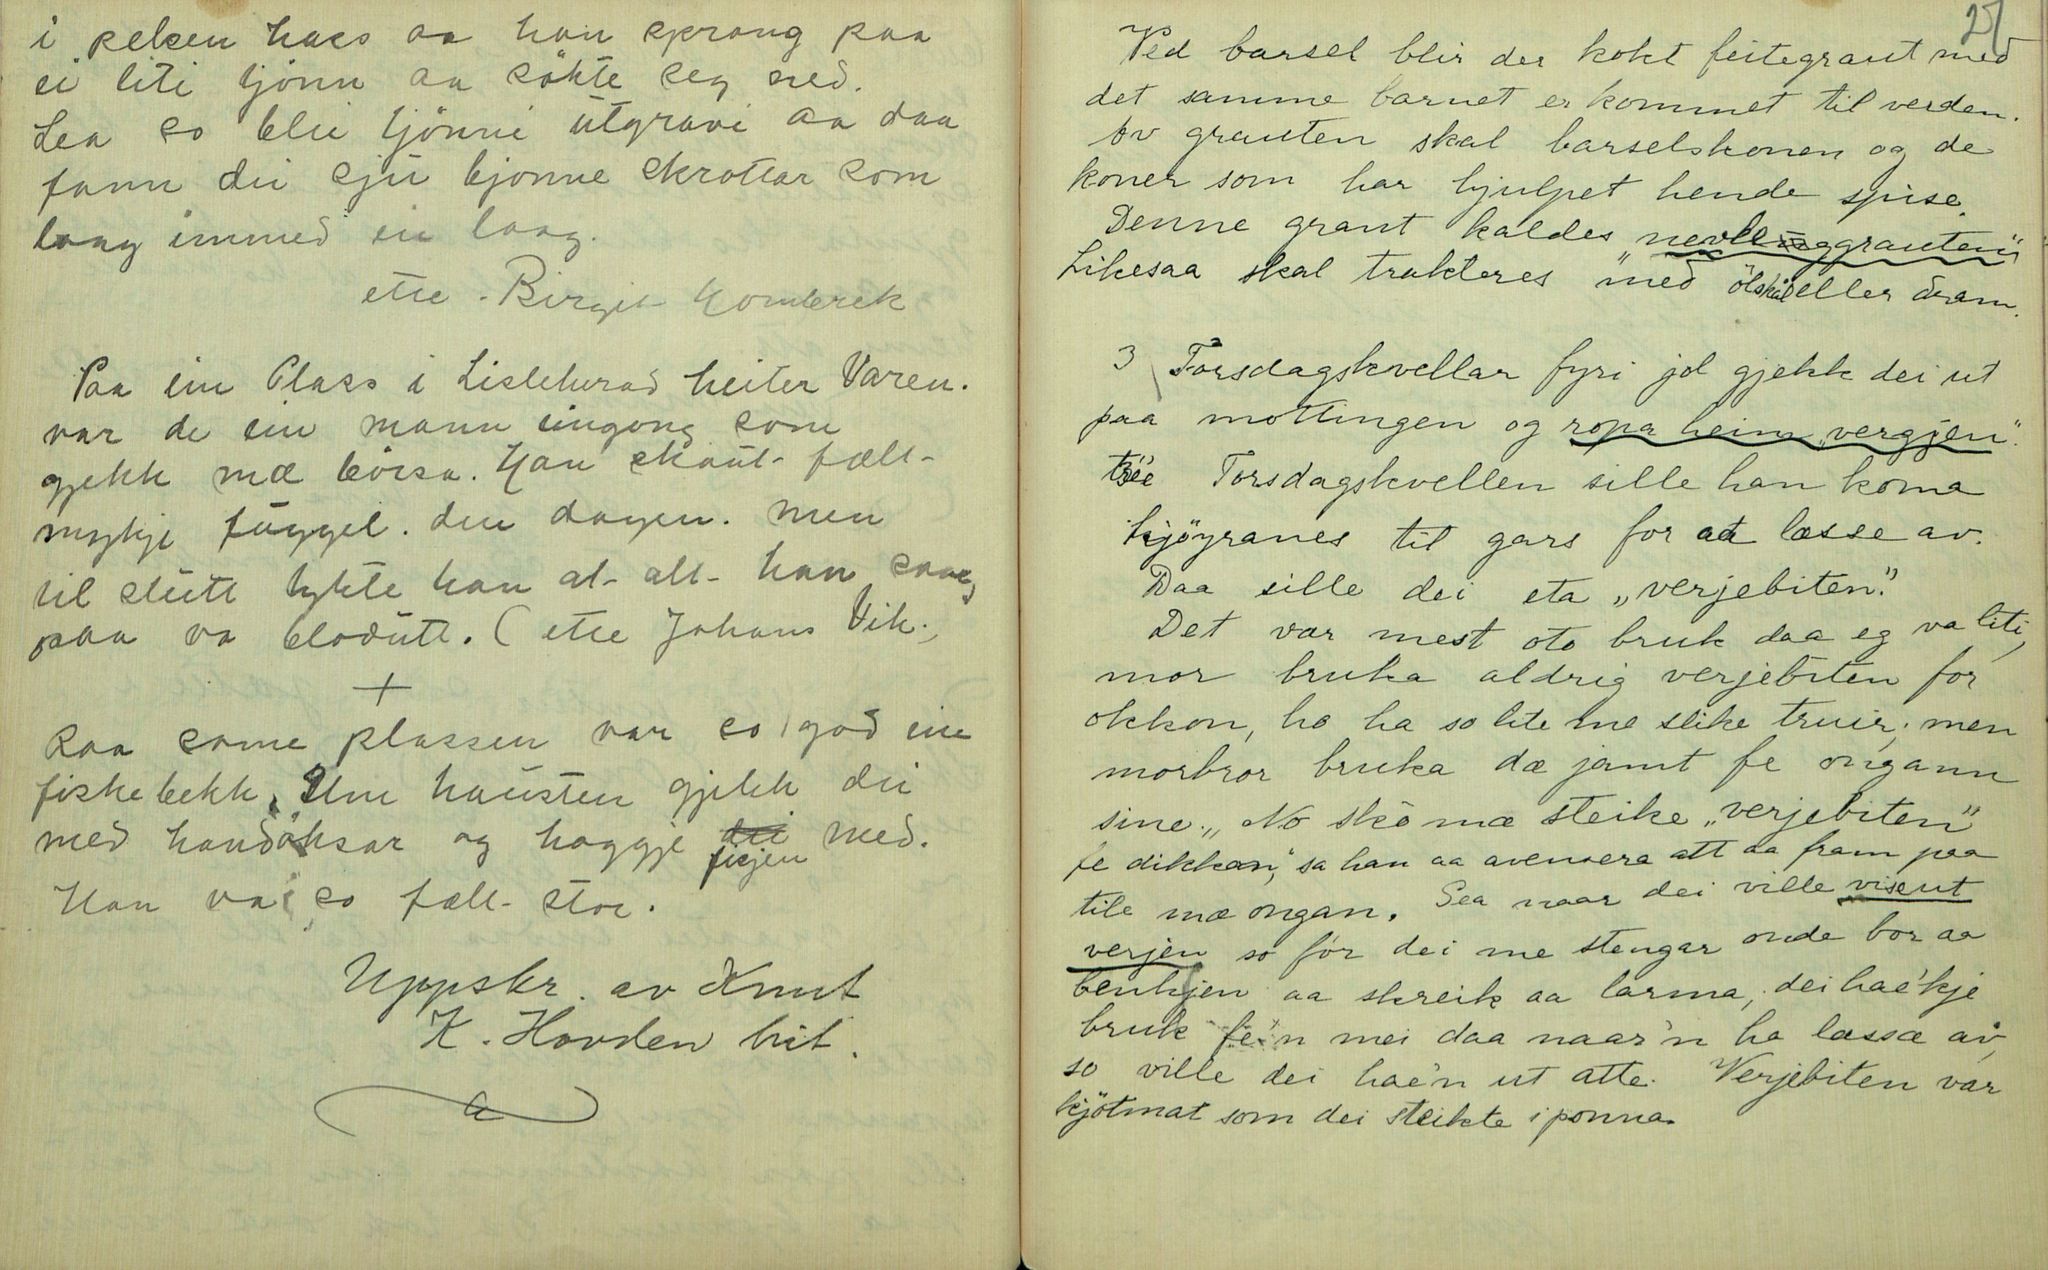 i pelsen hass aa han sprang paa
ei liti tjönn aa sökte seg ned.
Sea so blei tjönni utgravi aa daa
fann dei sju bjønne skrottar som
laag immed ein laag.
ette - Birgit
Paa ein Plass i Lisleherad heiter Varen.
var de ein mann eingong som
gjekk mæ börsa. Han skaut fælt
mykje fuggel. den dagen. men
til slutt tykte han at alt han saag
paa va blodutt. ( ette Johans Vik.,
+
Paa same plassen var so god ein
fiskebekk. Um hausten gjekk dei
med handöksar og hoggje dei med.
fisjen
Han var so fælt stor.
Uppskr. av Knut
K. Hovden hit.
27
Ved barsel blir der kokt feitegraut med
det samme barnet er kommet til verden.
Av grauten skal barselskonen og de
koner som har hjulpet hende spise.
Denne graut kaldes nevlinggrauten"
Likesaa skal trakteres med ölskål eller dram.
3 Torsdagskvellar fyri jol gjekk dei ut
paa mottingen og ropa heim „vergjen".
Torsdagskvellen sille han koma
kjöyranes til gars for aa læsse av.
Daa sille dei eta „verjebiten".
Det var mest oto bruk daa eg va liti,
mor bruka aldrig verjebiten for
okkon, ho ha so lite me slike truir, men
morbror bruka dæ jamt fe ongann
sine. „No sko mæ steike „verjebiten"
fe dikkan," sa han aa avensera att aa fram paa
tile mæ ongan. Sea naar dei ville vise ut
verjen so fór dei me stengar onde bor aa
benkjen aa skreik aa larma, dei hae'kje
bruk fe'n mei daa naar'n ha læssa av,
so ville dei hae'n ut atte. Verjebiten var
kjötmat som dei steikte i ponna.